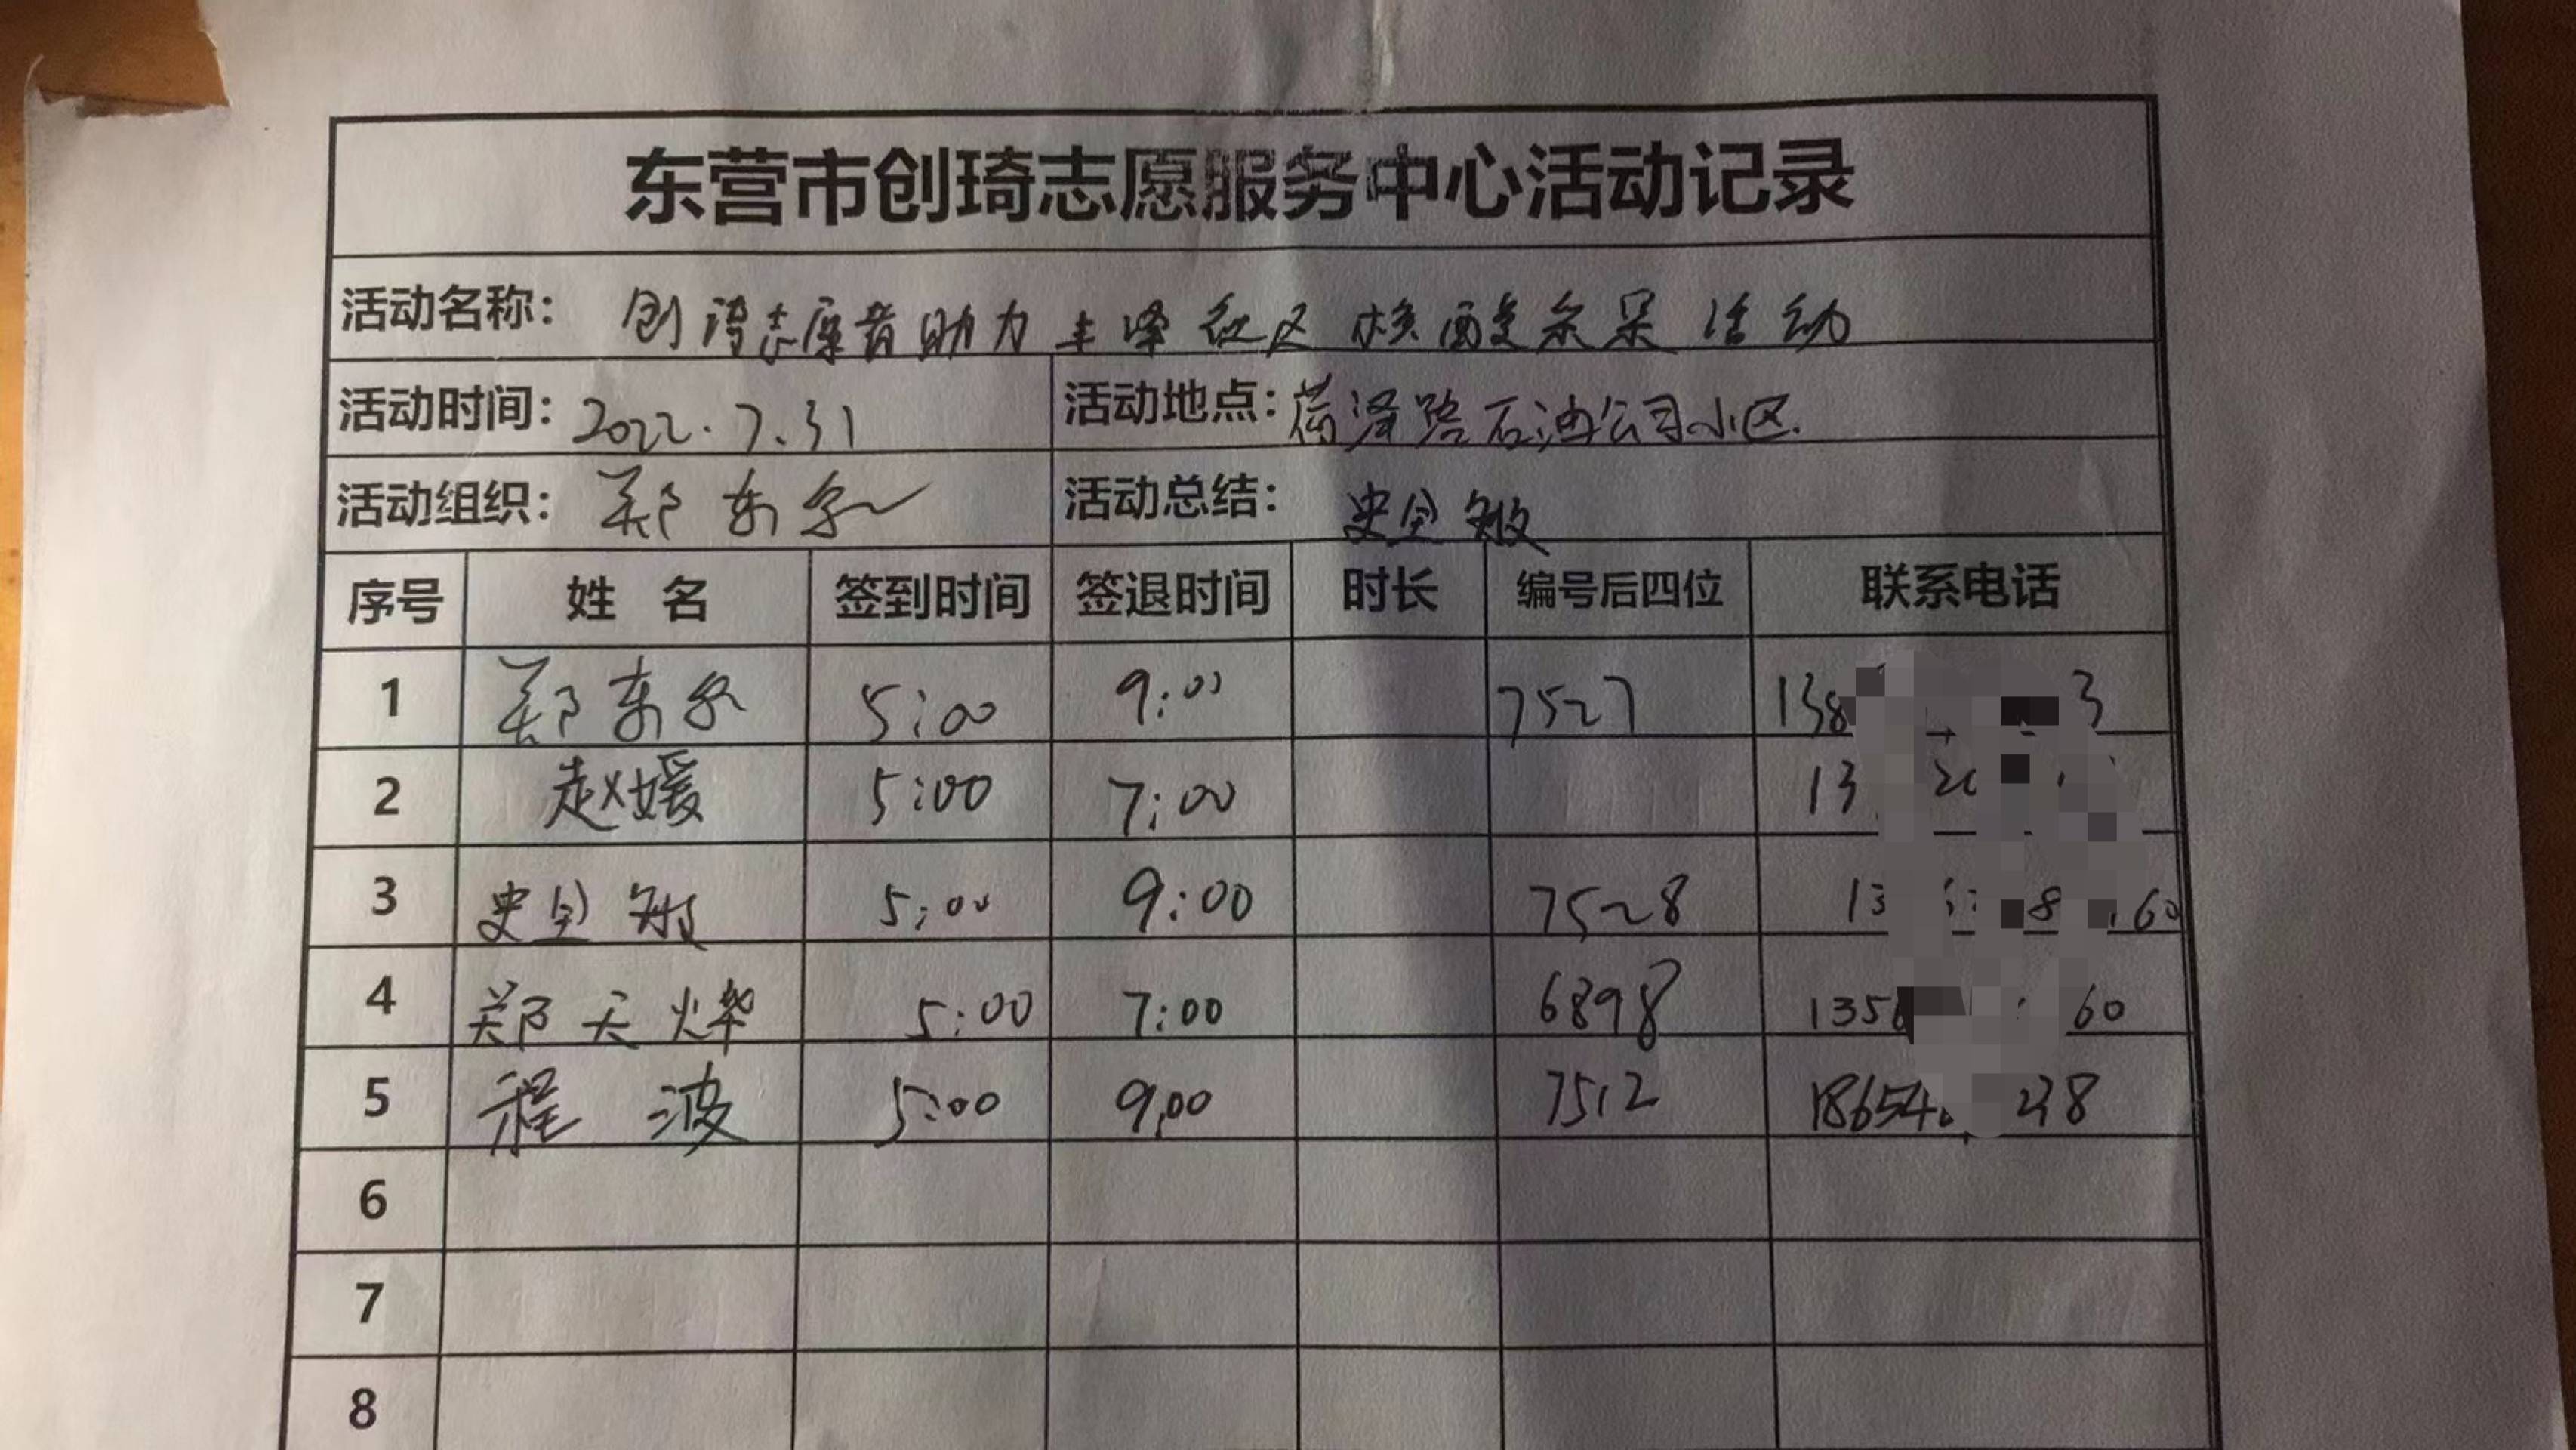 东营市创琦志愿服务中心活动记录
活动名称： 创琦志愿者助力丰泽社区核酸采集活动
活动时间：2022.7.31 活动地点：菏泽路石油公司小区.
活动组织：郑东 活动总结：史 敏
序号 姓 名 签到时间 签退时间 时长 编号后四位 联系电话
1 郑东 5:00 9:00 7527 138 3
2 赵媛 5:00 7:00 13 20
3 史 敏 5:00 9:00 7528 13 8 60
4 郑天烨 5:00 7:00 6898 1356 60
5 程 波 5:00 9:00 7512 18654 28
6
7
8